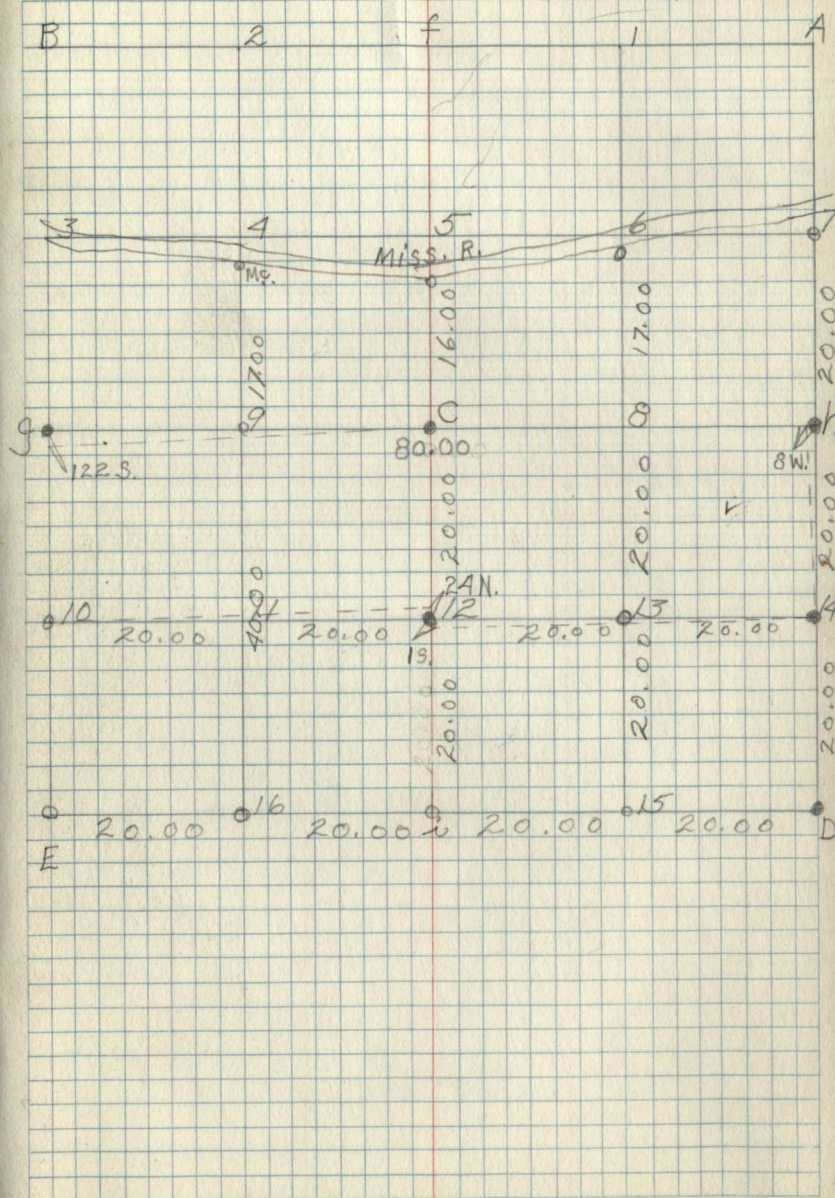 B 2 f 1 A
3 4 5 6 7
Miss. R.
Mc.
16.00 17.00 20.00
17.00
g 9 C 8 h
80.00
122 S. 8 W.
20.00 20.00 20.00
24 N.
10 12 13 14
40.00
20.00 20.00 20.00 20.00
1 S.
20.00 20.00 20.00
16 15
20.00 20.00 i 20.00 20.00 D
E